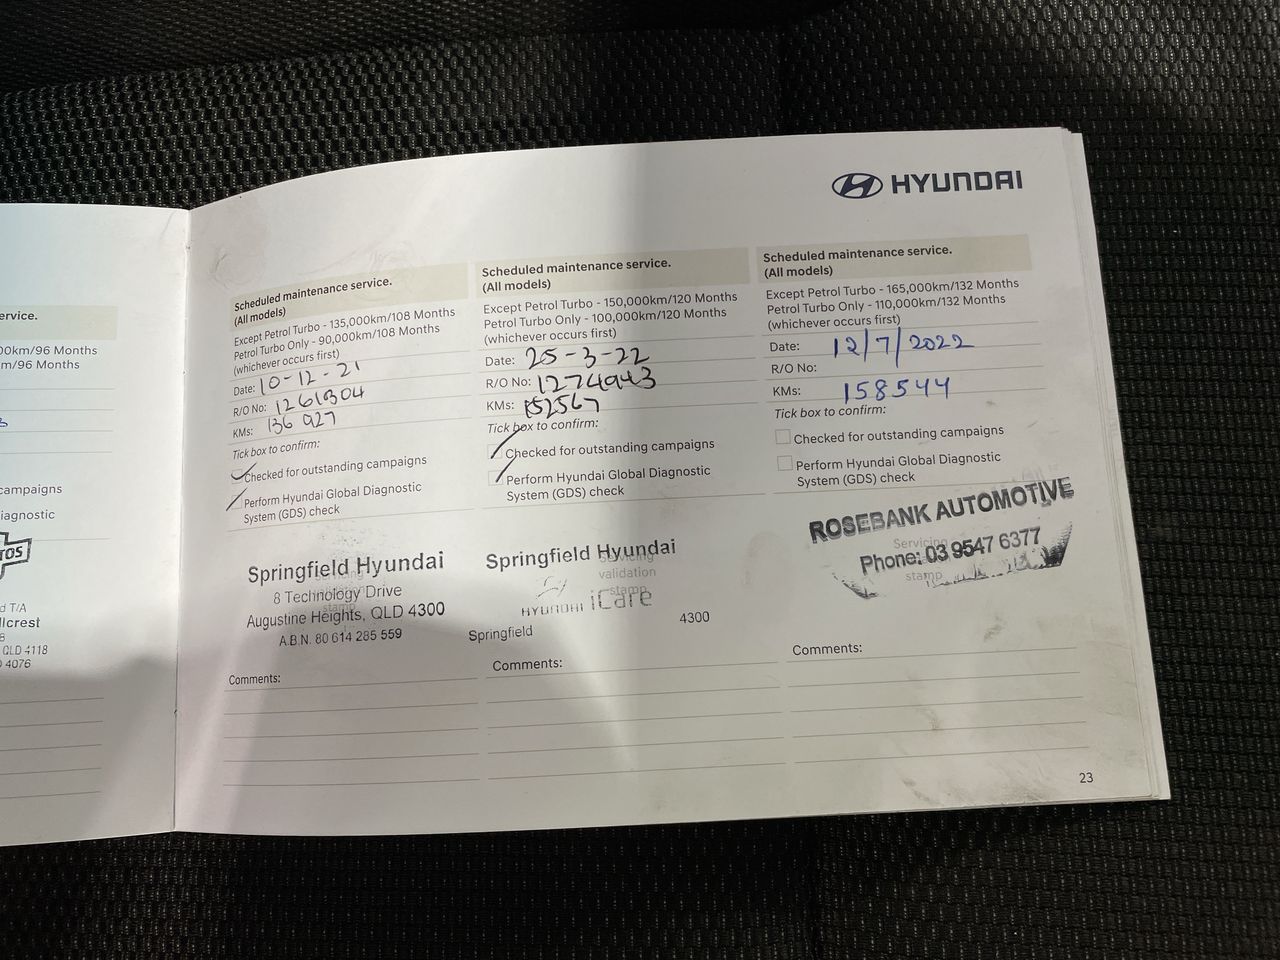 HYUNDAI
ervice.
0km/96 Months
m/96 Months
campaigns
iagnostic
TOS
d T/A
llcrest
8
QLD 4118
4076
Scheduled maintenance service.
(All models)
Except Petrol Turbo - 135,000km/108 Months
Petrol Turbo Only - 90,000km/108 Months
(whichever occurs first)
Date: 10-12-21
R/O No: 1261304
KMs: 136 927
Tick box to confirm:
Checked for outstanding campaigns
Perform Hyundai Global Diagnostic
System (GDS) check
Springfield Hyundai
Servicing
8 Technology Drive
stamp
Augustine Heights, QLD 4300
A.B.N. 80 614 285 559
Comments:
Scheduled maintenance service.
(All models)
Except Petrol Turbo - 150,000km/120 Months
Petrol Turbo Only - 100,000km/120 Months
(whichever occurs first)
Date: 25-3-22
R/O No: 1274943
KMs: 152567
Tick box to confirm:
Checked for outstanding campaigns
Perform Hyundai Global Diagnostic
System (GDS) check
Springfield Hyundai
Servicing
validation
stamp
HYUNDAI iCare
Springfield 4300
Comments:
Scheduled maintenance service.
(All models)
Except Petrol Turbo - 165,000km/132 Months
Petrol Turbo Only - 110,000km/132 Months
(whichever occurs first)
Date: 12/7/2022
R/O No:
KMs: 158544
Tick box to confirm:
Checked for outstanding campaigns
Perform Hyundai Global Diagnostic
System (GDS) check
ROSEBANK AUTOMOTIVE
Servicing
Phone: 03 9547 6377
stamp
Comments:
23